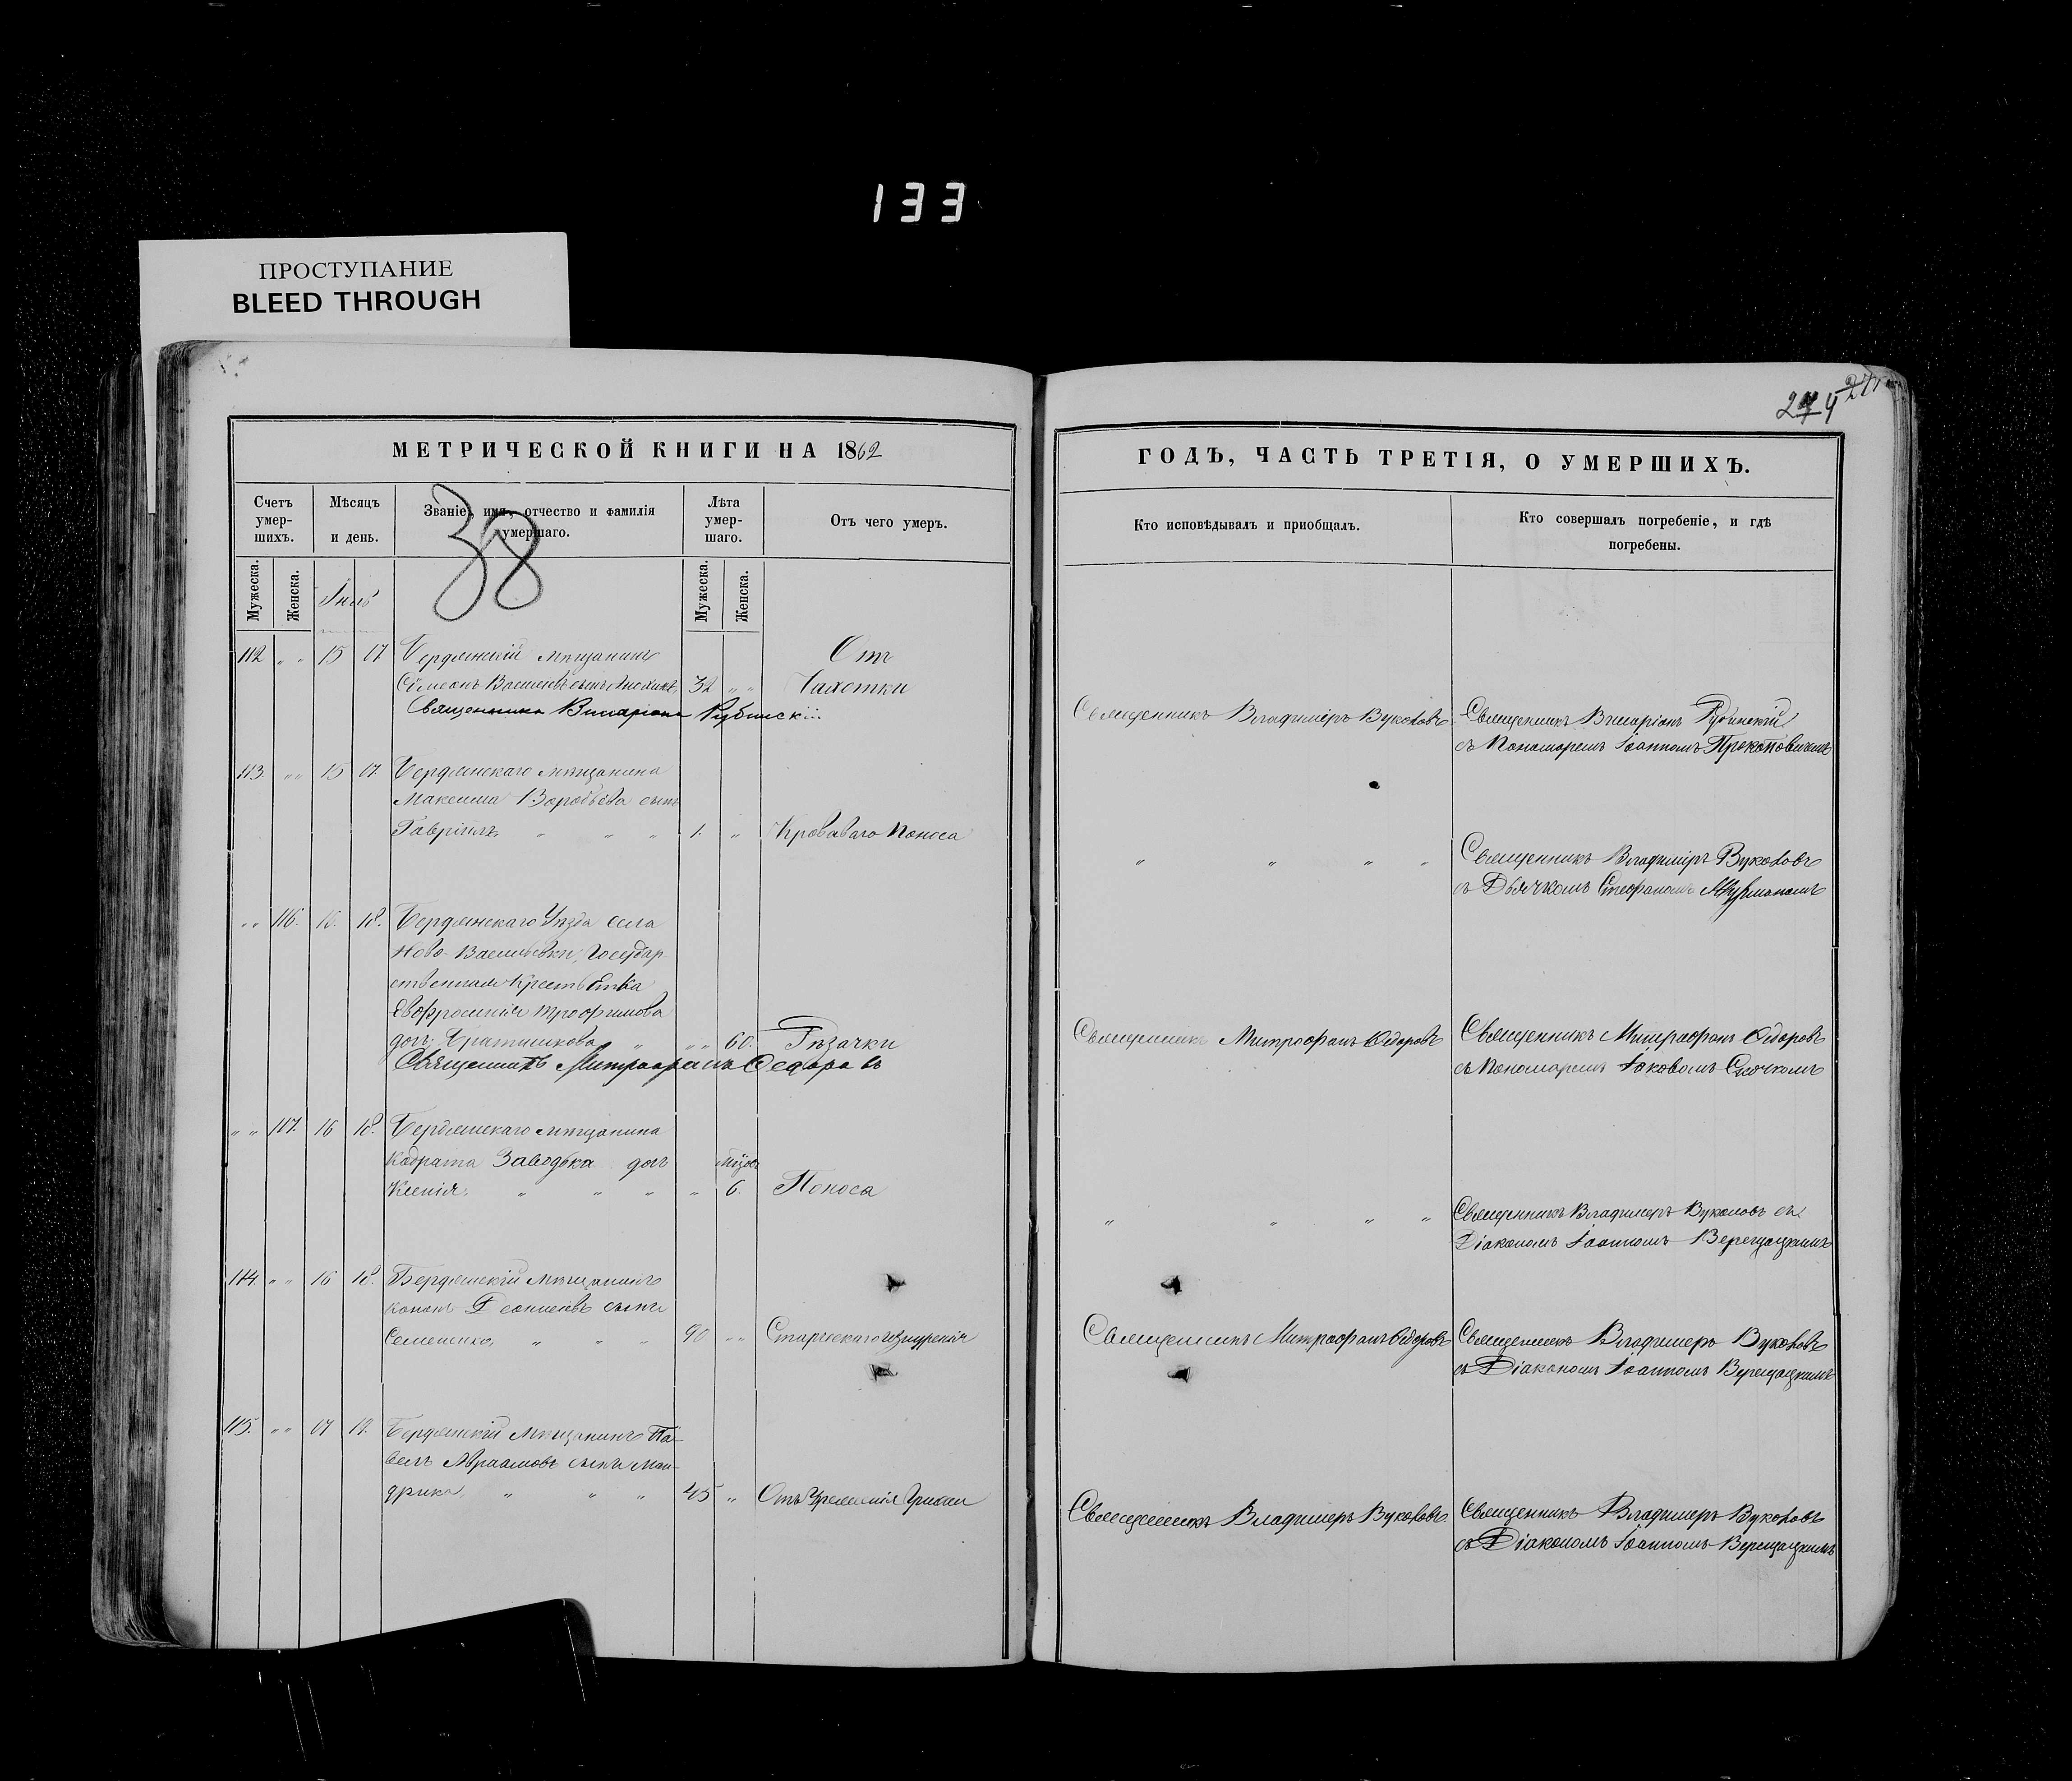 133
ПРОСТУПАНИЕ
BLEED THROUGH
274
МЕТРИЧЕСКОЙ КНИГИ НА 1862
ГОДЪ, ЧАСТЬ ТРЕТІЯ, О УМЕРШИХЪ.
Счетъ умер-шихъ.
Мѣсяцъ и день.
Званіе, имя, отчество и фамилія умершаго.
Лѣта умер-шаго.
Отъ чего умеръ.
Кто исповѣдывалъ и пріобщалъ.
Кто совершалъ погребеніе, и гдѣ погребены.
Мужеска.
Женска.
Мужеска.
Женска.
38
112 " " 15 17 Бердянскій мѣщанинъ
Отъ
Сѵмеонъ Васильевъ сынъ 32 " " Чахотки
Священникъ Виссаріонъ Рубинскій
Священникъ Владиміръ Вуколовъ
Священникъ Виссаріонъ Рубинскій
съ Пономаремъ Іоанномъ Прокоповичемъ
113. " " 15 17. Бердянскаго мѣщанина
Максима Воробьева сынъ
Гавріилъ " " " 1. " Кроваваго поноса
" " " "
Священникъ Владиміръ Вуколовъ
съ Дьячкомъ Стефаномъ
" " 116. 16. 18. Бердянскаго Уѣзда села
Ново-Васильевки, Государ
ственная Крестьянка
Евфросинія Трофимова
дочь " " " 60.
Священникъ Митрофанъ Ѳедоровъ
Священникъ Митрофанъ Ѳедоровъ
Священникъ Митрофанъ Ѳедоровъ
съ Пономаремъ Іаковомъ
" " 117. 16 18. Бердянскаго мѣщанина
Кодрата дочь
Ксенія " " " " 6. Поноса
" " " "
Священникъ Владимеръ Вуколовъ съ
Діакономъ Іоанномъ Верещацкимъ
114. " " 16 18. Бердянскій мѣщанинъ
Кононъ сынъ
Семененко " " " 90 " "
Священникъ Митрофанъ Ѳедоровъ
Священникъ Владимеръ Вуколовъ
съ Діакономъ Іоанномъ Верещацкимъ
115. " " 17 19. Бердянскій Мѣщанинъ Па-
велъ Авраамовъ сынъ Ман-
дрика " " " 45 "
Священникъ Владимеръ Вуколовъ
Священникъ Владимеръ Вуколовъ
съ Діакономъ Іоанномъ Верещацкимъ